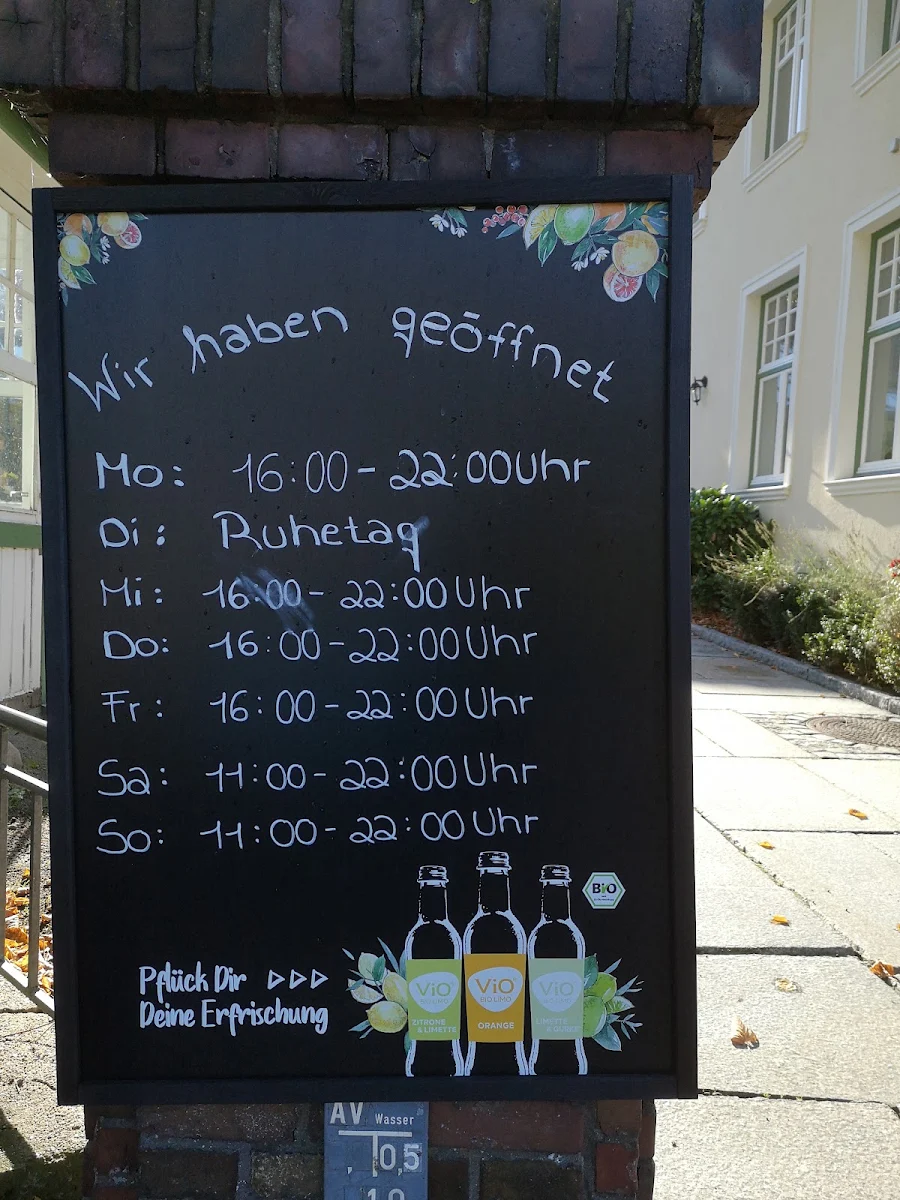 Wir haben geöffnet
Mo: 16:00 - 22:00 Uhr
Di: Ruhetag
Mi: 16:00 - 22:00 Uhr
Do: 16:00 - 22:00 Uhr
Fr: 16:00 - 22:00 Uhr
Sa: 11:00 - 22:00 Uhr
So: 11:00 - 22:00 Uhr
Bio
Pflück Dir ▷▷▷
Deine Erfrischung
ViO
BIO LIMO
ZITRONE
& LIMETTE
ViO
BIO LIMO
ORANGE
ViO
BIO LIMO
LIMETTE
AV Wasser
0,5